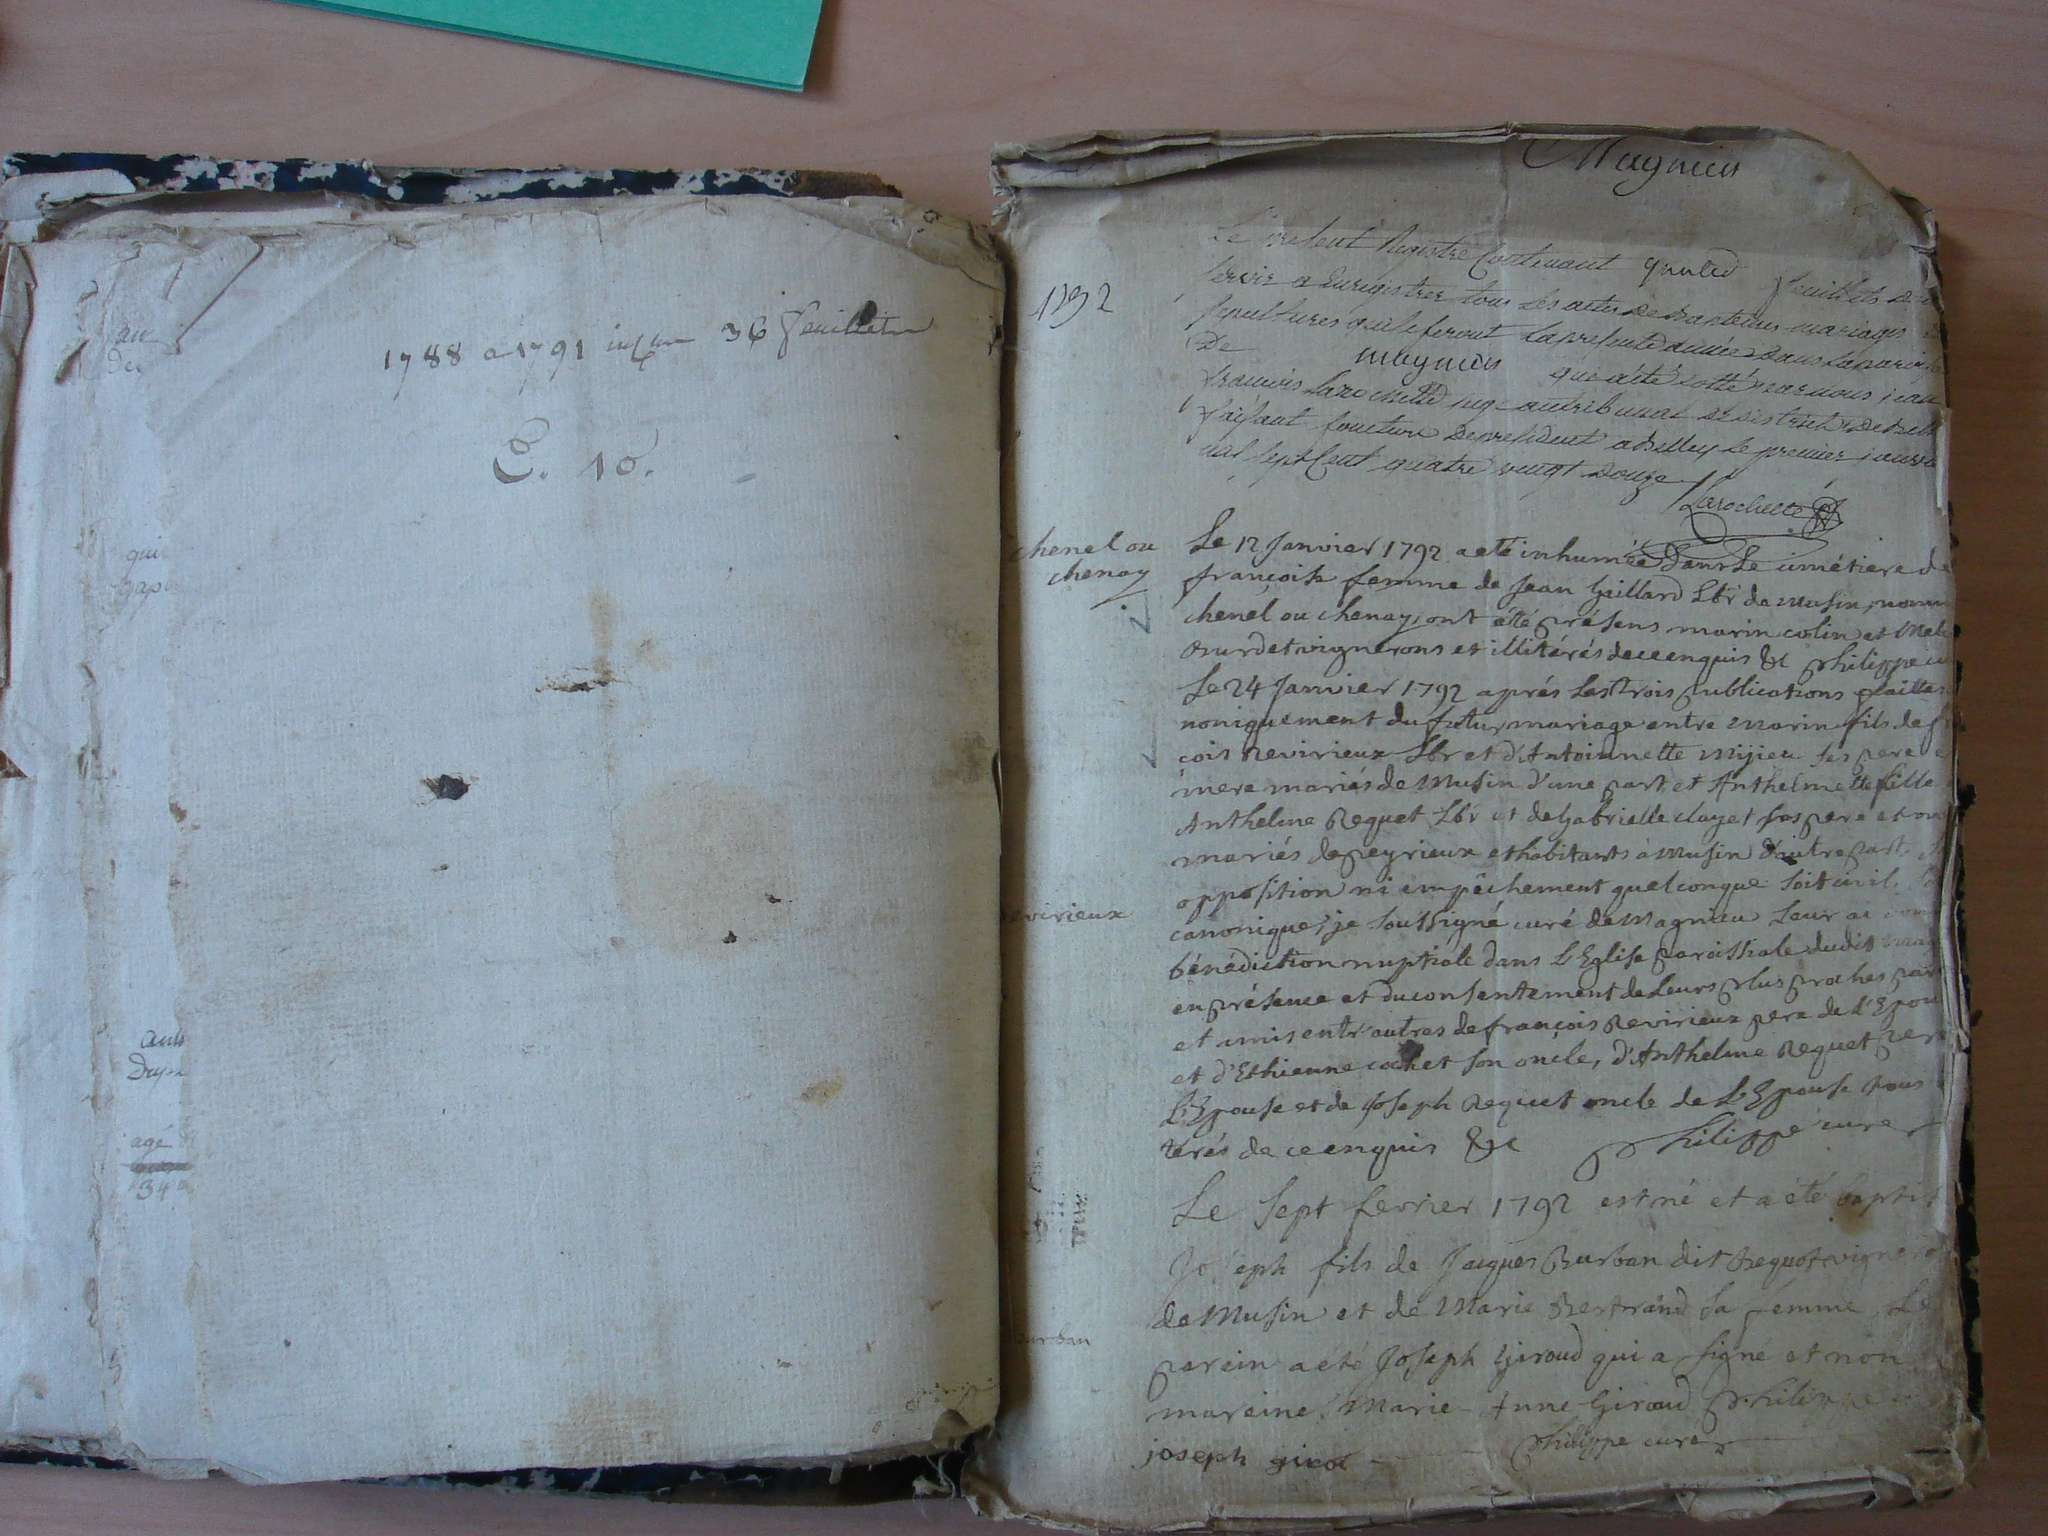 1788 a 1791 36 feuillets
E. 10.
qui
agé
Magnieu
1792
Le present Registre Contenant feuillets
servir a Enregistrer tous les actes de Baptemes mariages
sepultures qui se feront la presente année dans la paroisse
De magnieu qui a été cotté par nous jean
françois Larochette juge au tribunal de district de Belley
faisant fonction de president a Belley le premier janvier
mil sept Cent quatre vingt Douze
Larochette
chenel ou
chenay
Le 12 Janvier 1792 a eté inhumée dans Le cimétiere de
françoise femme de Jean Guillard Lbr de Musin, nomm
chenel ou chenay, ont été présens marin colin et
Burdet vignerons et illitérés de ce enquis &c Philippe cu
Le 24 Janvier 1792 aprés Les trois publications faittes
noniquement du futur mariage entre Marin fils de
çois Revirieux Lbr et d'Antoinnette Mijieu ses pere
mere mariés de Musin d'une part, et Anthelmette fille
Anthelme Reguet Lbr et de Gabrielle clayet ses pere et
mariés de peyrieux et habitants à Musin d'autre part,
opposition ni empêchement quelconque soit civil
evirieux
canonique, je soussigné curé de Magnieu Leur ai
bénédiction nuptiale dans L'Eglise paroissiale dudit
en présence et du consentement de Leurs plus proches
et amis entr'autres de françois Revirieux pere de L'Epou
et d'Ethienne cochet son oncle, d'Anthelme Reguet pere
L'Epouse et de Joseph Reguet oncle de L'Epouse tous
térés de ce enquis &c Philippe curé
Le Sept fevrier 1792 est né et a été baptis
Joseph fils de Jacques Burban dit vigneron
de Musin et de Marie Bertrand sa femme Le
urban
parein a été Joseph Giroud qui a signe et non
mareine Marie-Anne Giroud Philippe
joseph girod Philippe cure